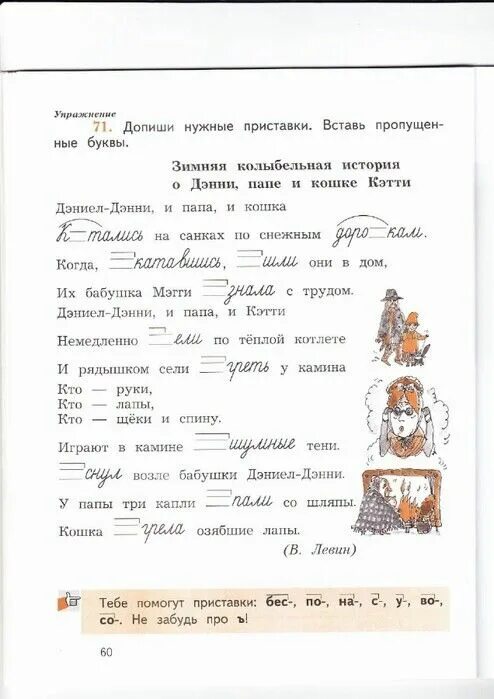 Упражнение
71. Допиши нужные приставки. Вставь пропущен-
ные буквы.
Зимняя колыбельная история
о Дэнни, папе и кошке Кэтти
Дэниел-Дэнни, и папа, и кошка
К_тались на санках по снежным доро_кам.
Когда, _катавшись, _шли они в дом,
Их бабушка Мэгги _знала с трудом.
Дэниел-Дэнни, и папа, и Кэтти
Немедленно _ели по тёплой котлете
И рядышком сели _греть у камина
Кто — руки,
Кто — лапы,
Кто — щёки и спину.
Играют в камине _шумные тени.
_снул возле бабушки Дэниел-Дэнни.
У папы три капли _пали со шляпы.
Кошка _грела озябшие лапы.
(В. Левин)
Тебе помогут приставки: бес-, по-, на-, с-, у-, во-,
со-. Не забудь про ъ!
60